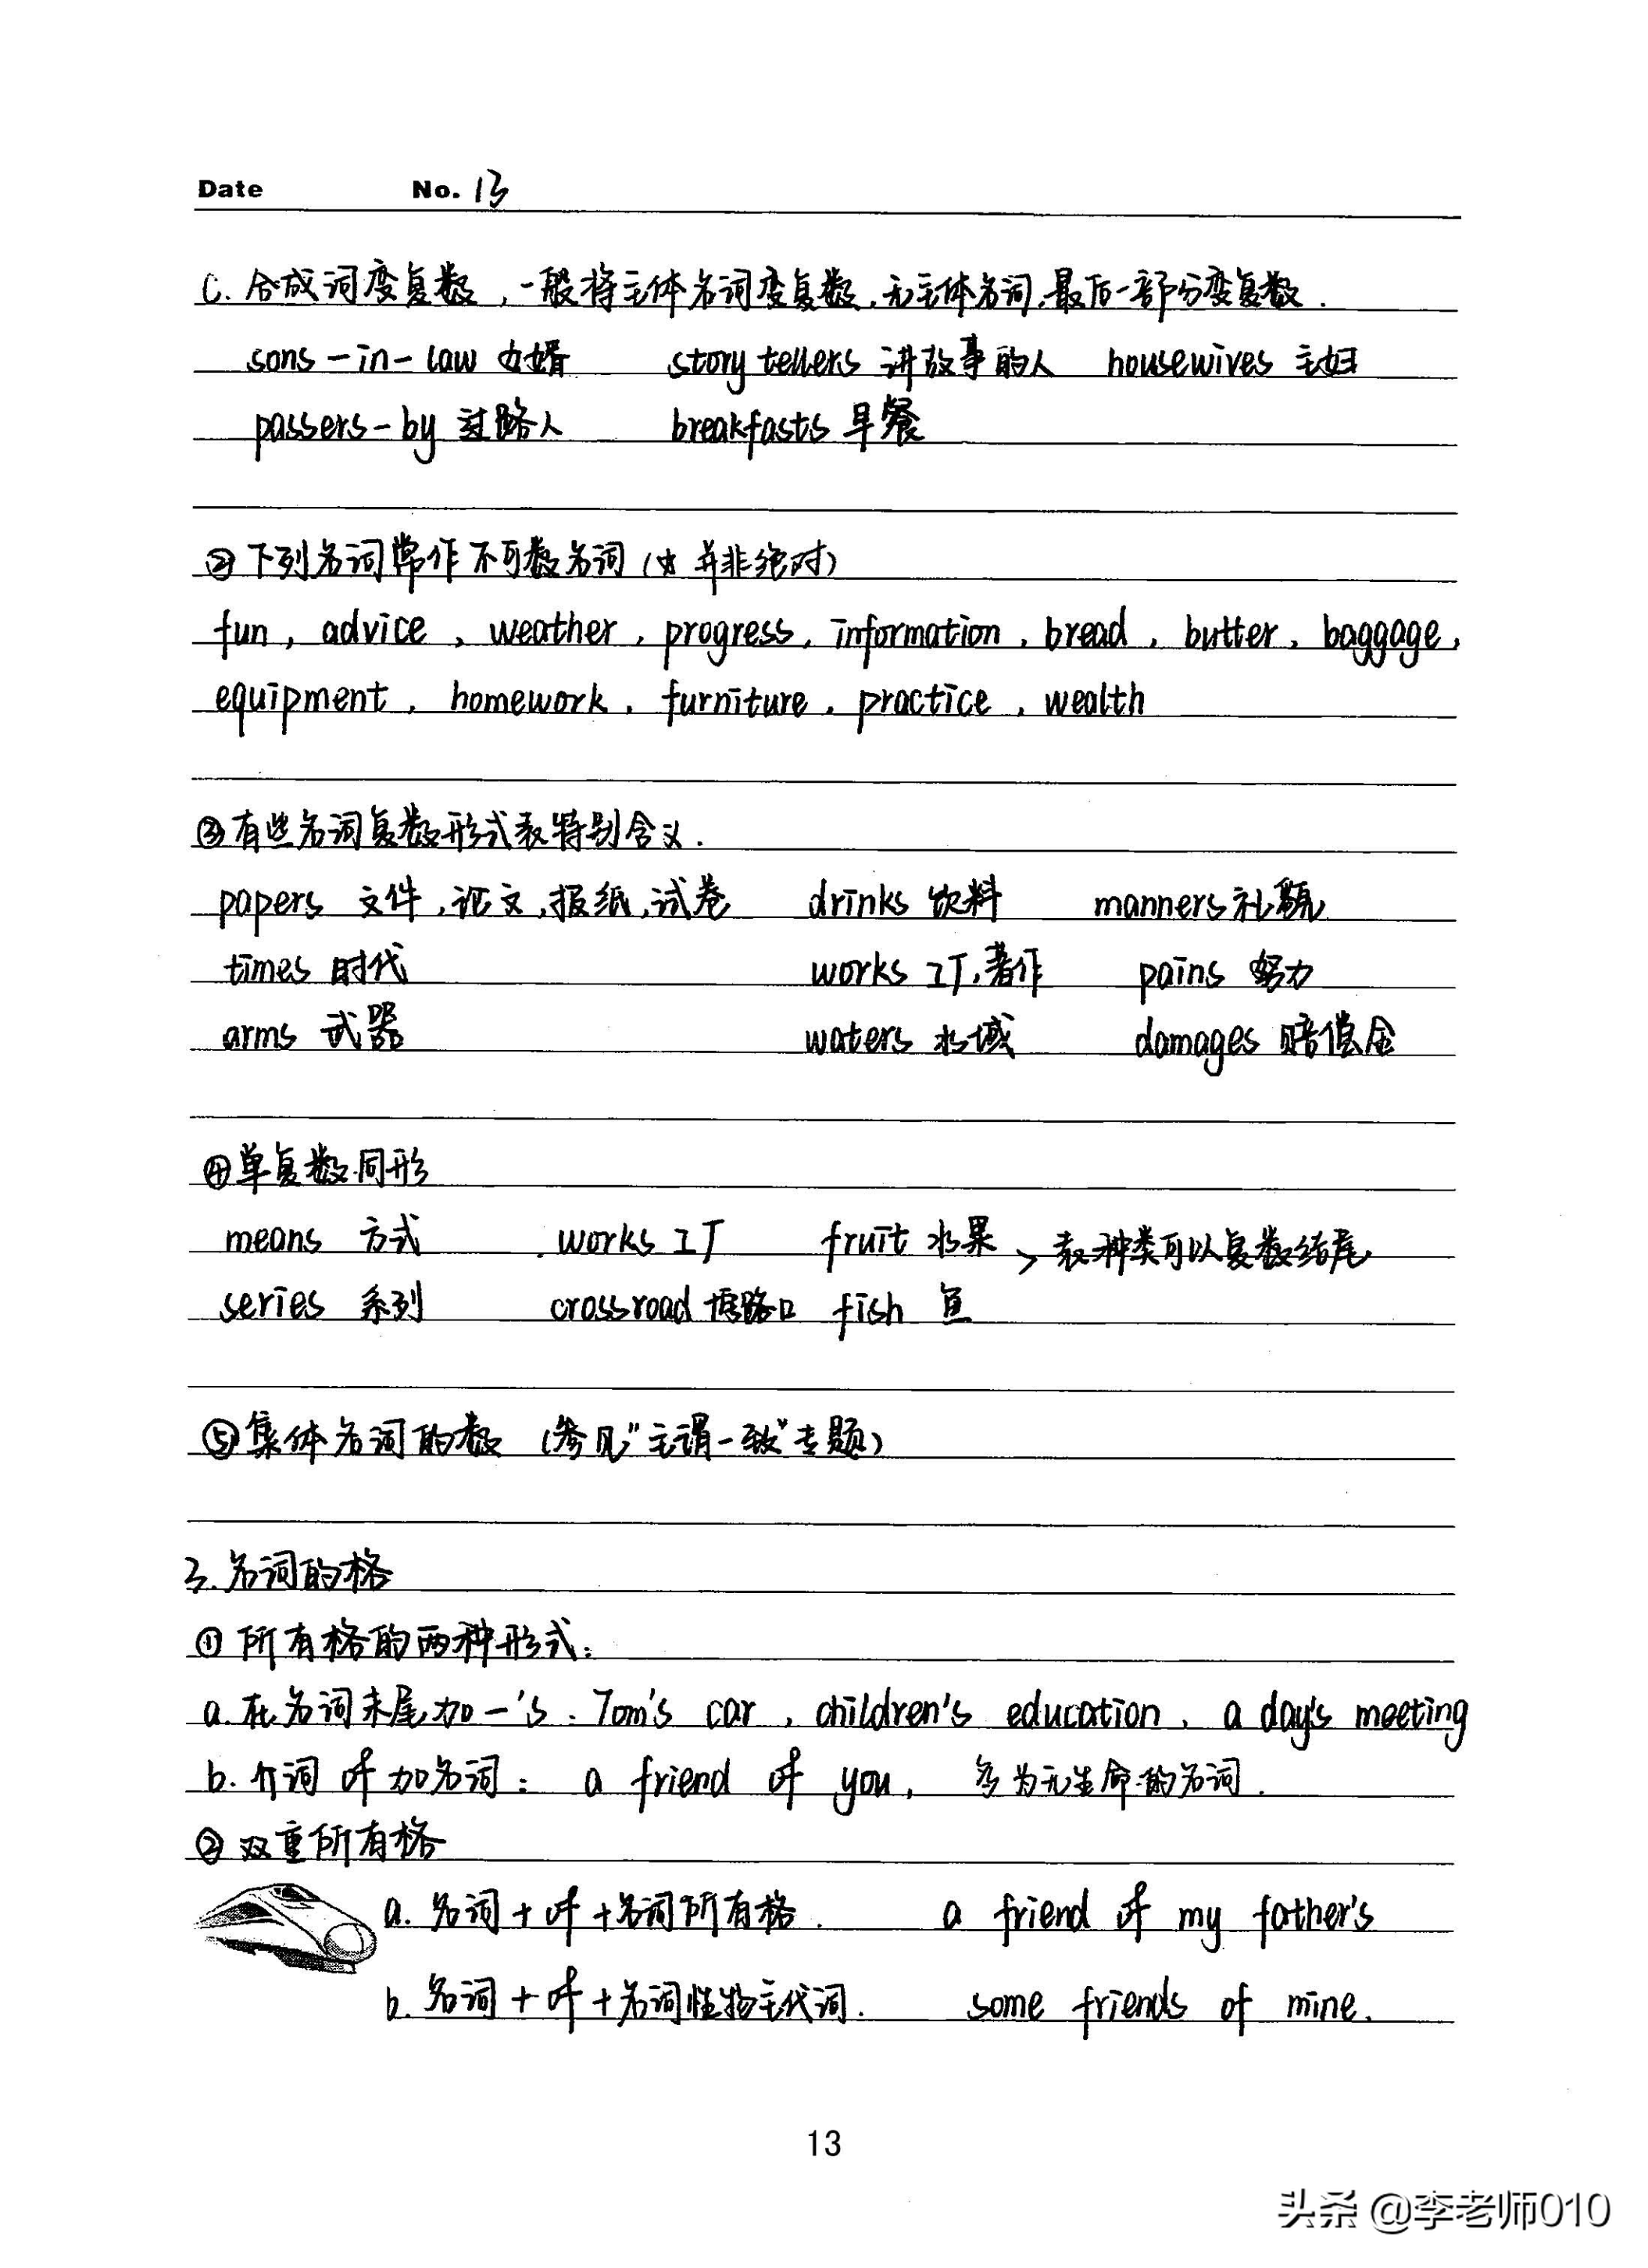 Date No. 13
C. 合成词变复数,一般将主体名词变复数,无主体名词,最后一部分变复数.
sons-in-law 女婿 story tellers 讲故事的人 housewives 主妇
passers-by 过路人 breakfasts 早餐
②下列名词常作不可数名词(并非绝对)
fun, advice, weather, progress, information, bread, butter, baggage,
equipment, homework, furniture, practice, wealth
③有些名词复数形式表特别含义.
papers 文件,论文,报纸,试卷 drinks 饮料 manners 礼貌
times 时代 works 工厂,著作 pains 努力
arms 武器 waters 水域 damages 赔偿金
④单复数同形
means 方式 works 工厂 fruit 水果 > 表种类可以复数结尾
series 系列 crossroad 路口 fish 鱼
⑤集体名词的数 (参见"主谓一致"专题)
3.名词的格
①所有格的两种形式:
a.在名词末尾加-'s: Tom's car, children's education, a day's meeting
b.介词of加名词: a friend of you, 多为无生命的名词.
②双重所有格
a.名词+of+名词所有格. a friend of my father's
b.名词+of+名词性物主代词. some friends of mine.
13
头条 @李老师010